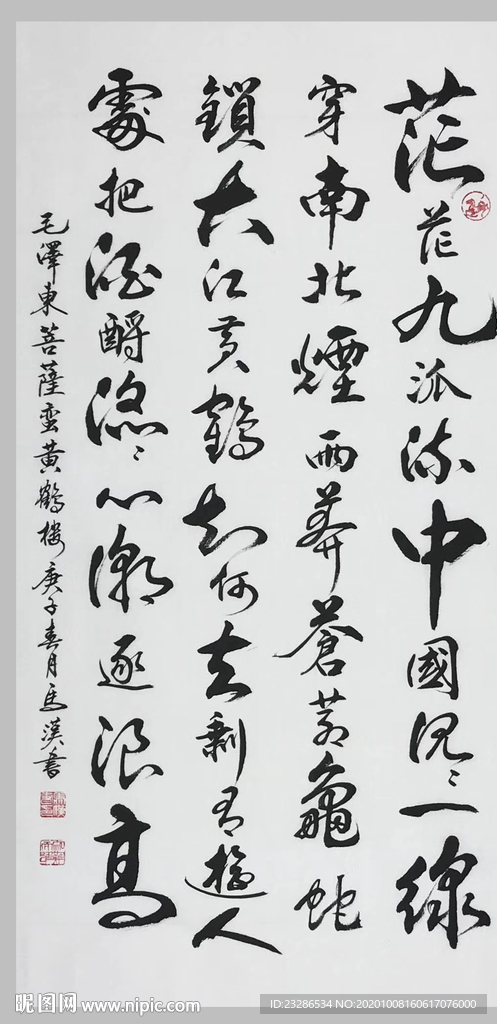 茫茫九派流中國沉〻一線
穿南北煙雨莽蒼蒼龜蛇
鎖大江黄鶴知何去剩有遊人
處把酒酹滔〻心潮逐浪高
毛澤東菩薩蛮黄鶴楼 庚子春月馬漢書
昵图网 www.nipic.com
ID:23286534 NO:20201008160617076000